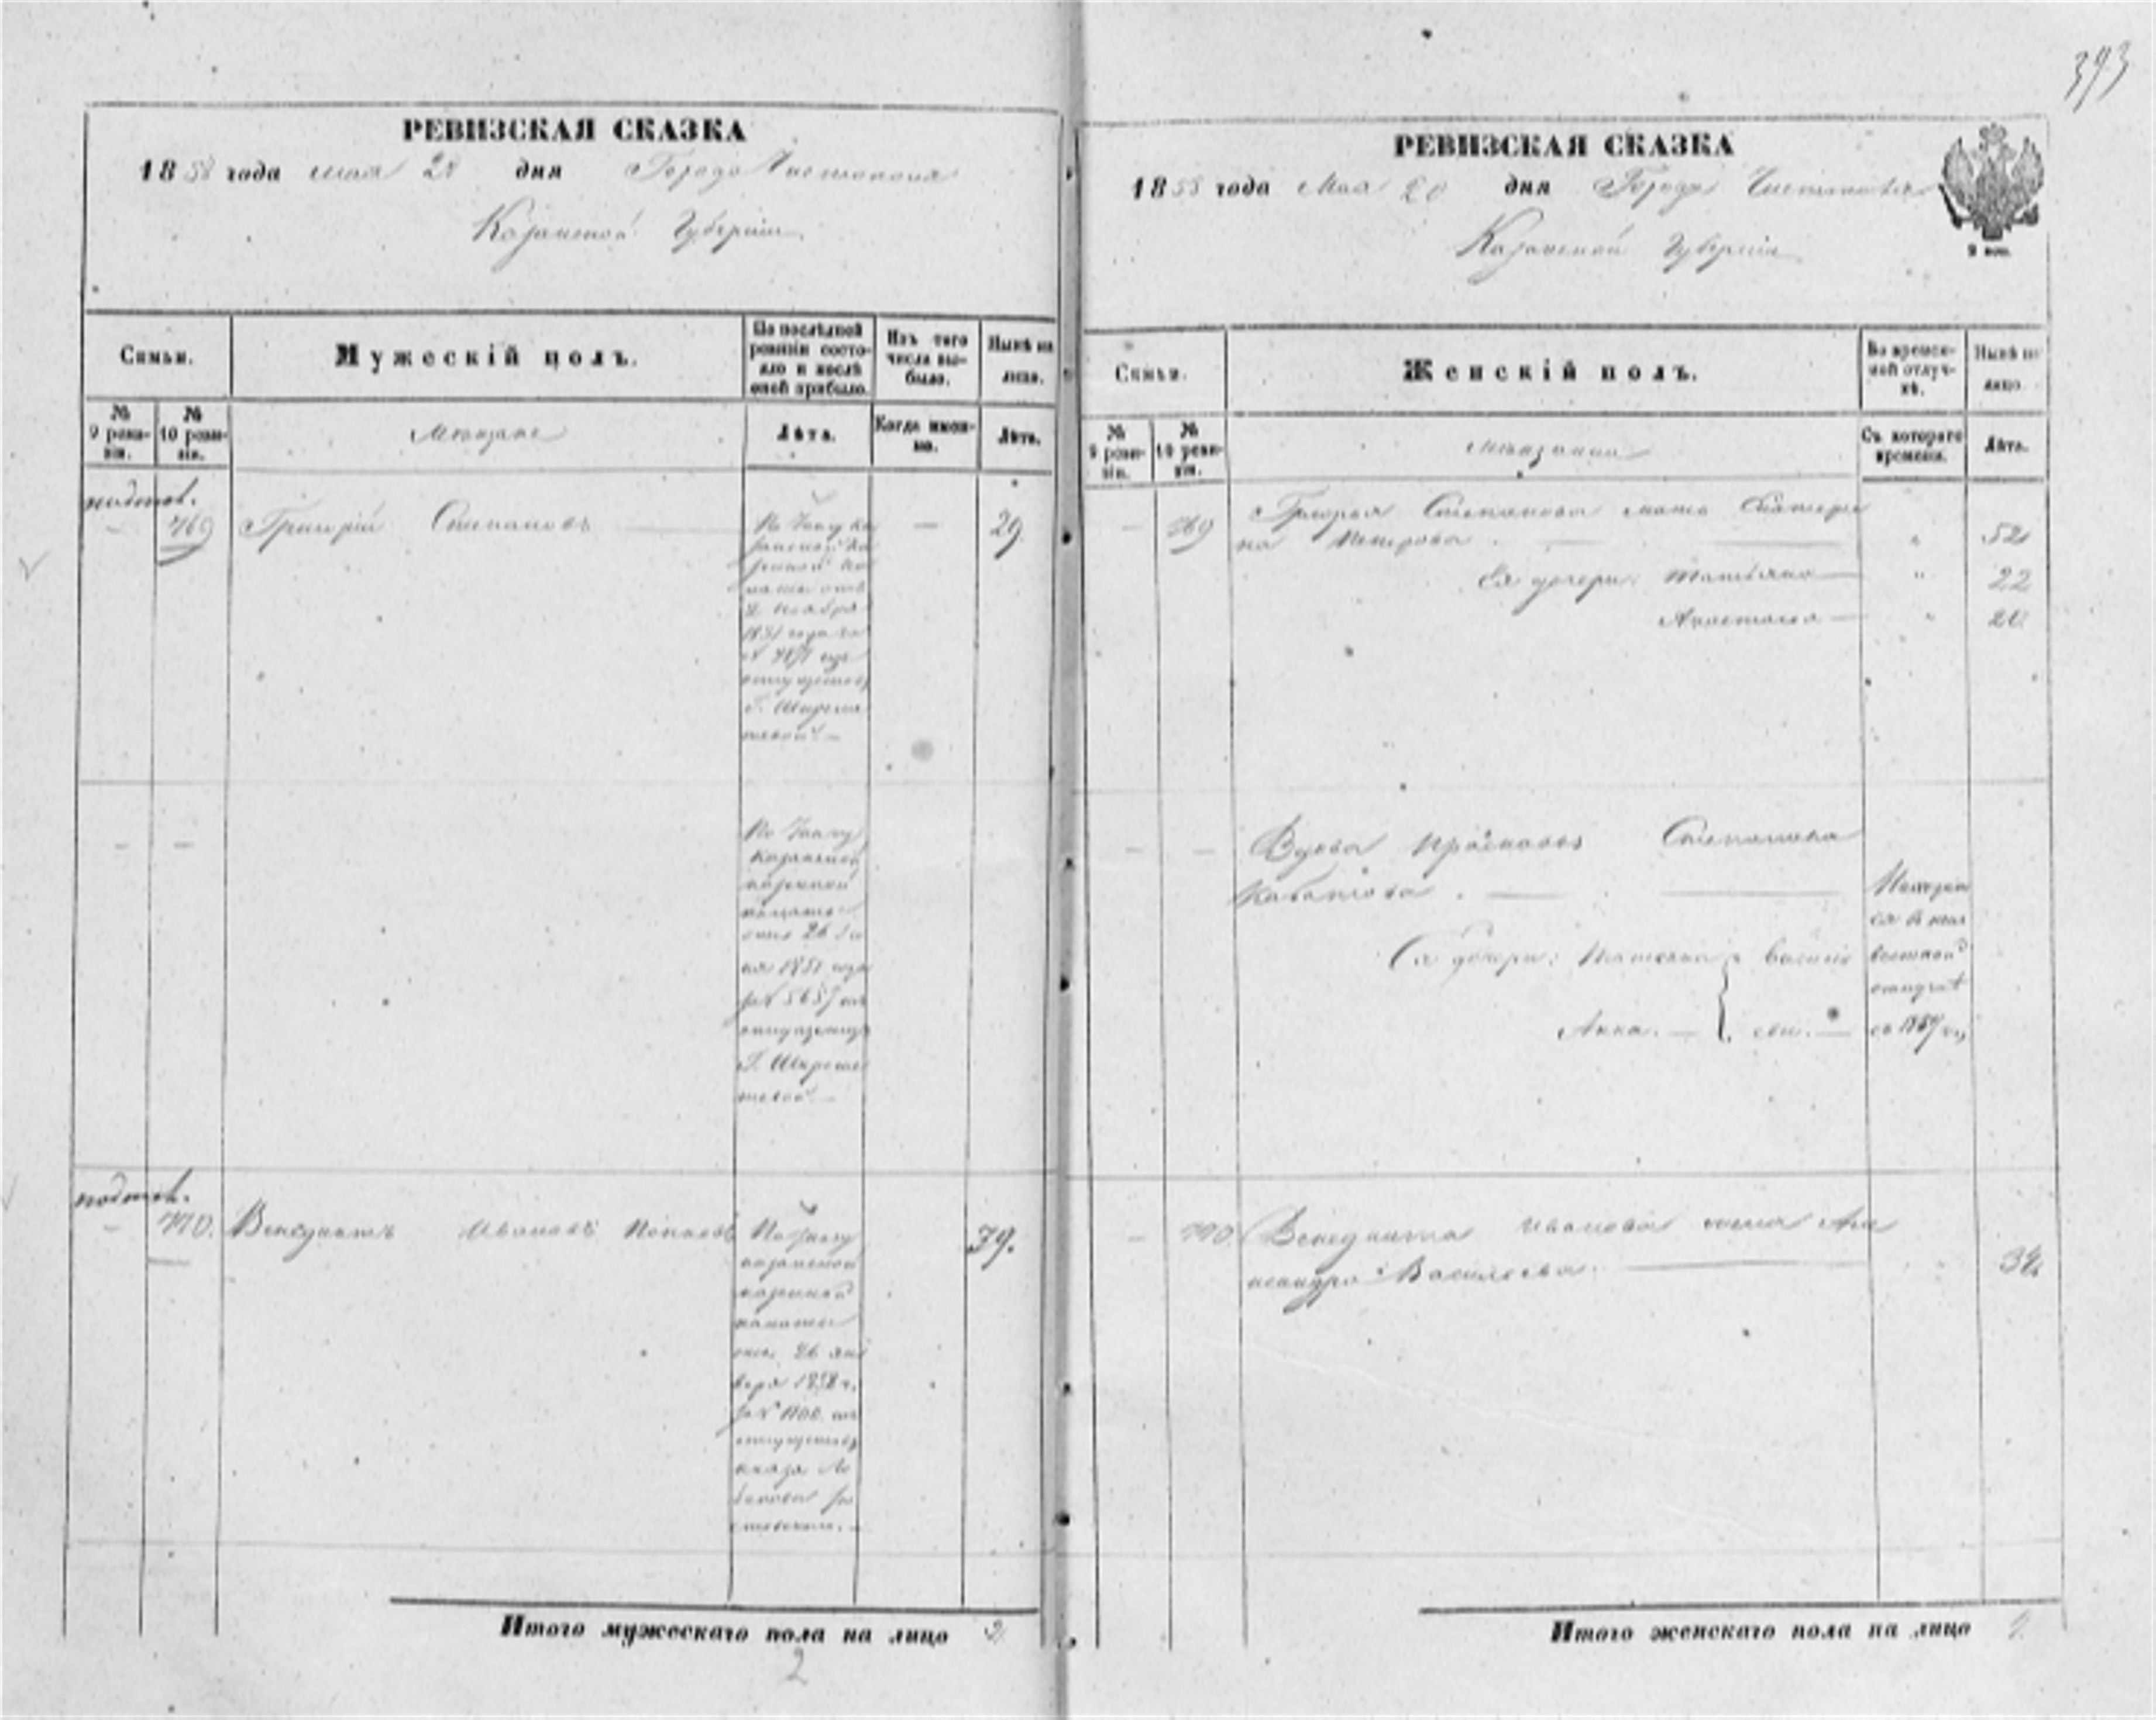 393
РЕВИЗСКАЯ СКАЗКА
1858 года мая 20 дня Города Чистополя
Казанской Губернии
Семьи.
Мужескій полъ.
По послѣдней ревизіи состояло и послѣ оной прибыло.
Изъ того числа выбыло.
Нынѣ на лицо.
№ 9 ревизіи.
№ 10 ревизіи.
Мѣщане
Лѣта.
Когда именно.
Лѣта.
769 Григорій Степановъ — 29
По Указу Ка
занской Ка
зенной па
латы отъ
2 Ноября
1851 года за
№ из
отпущенных
Г.
— —
По Указу
Казанской
казенной
палаты
отъ 26
1851 года
за № 5657 из
Г.
770. Венедиктъ Ивановъ Поповъ 39.
По указу
казанской
казенной
палаты
отъ 26 Ян
варя 1858 г.
за № из
отпущенных
князя Ло
банова Ро
стовскаго.
Итого мужескаго пола на лицо 2
2
РЕВИЗСКАЯ СКАЗКА
1858 года Мая 20 дня Города Чистополя
Казанской Губернии
Семьи.
Женскій полъ.
Во временной отлучкѣ.
Нынѣ на лицо
№ 9 ревизіи.
№ 10 ревизіи.
Мѣщанки
Съ котораго времени.
Лѣта.
— 769 Григорья Степанова мать Екатери
на Петрова — " 52
Ея дочери: Татьяна — " 22
Анастасія — " 20
— — Вдова Прасковья Степанова
Ея дочери:
Анна. —
Находит
ся в неиз
вестной
отлучке
съ 1857 г.
— 770. Венедикта Иванова жена Але
ксандра Васильева. —
Итого женскаго пола на лицо